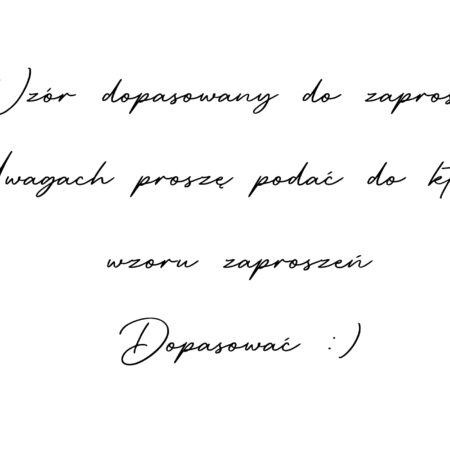 Wzór dopasowany do zapros
Uwagach proszę podać do kt
wzoru zaproszeń
Dopasować :)